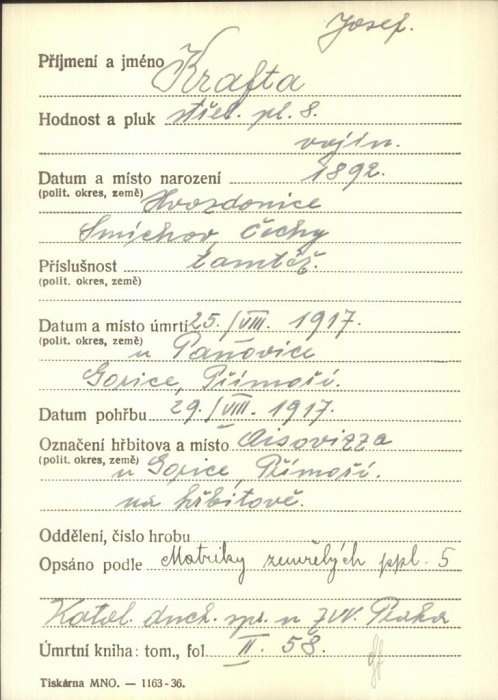 Josef.
Příjmení a jméno Krafta
Hodnost a pluk střel. pl. 8.
vojín.
Datum a místo narození 1892.
(polit. okres, země) Hvozdonice
Smíchov, Čechy
Příslušnost tamtéž.
(polit. okres, země)
Datum a místo úmrtí 25./VIII. 1917.
(polit. okres, země) u Paňovice
Gorice, Přímoří.
Datum pohřbu 29./VIII. 1917.
Označení hřbitova a místo Aisovizza
(polit. okres, země) u Gorice, Přímoří.
na hřbitově.
Oddělení, číslo hrobu
Opsáno podle Matriky zemřelých ppl. 5
Katol. duch. spr. u ZVV. Praha
Úmrtní kniha: tom., fol. II. 58.
Tiskárna MNO. — 1163-36.